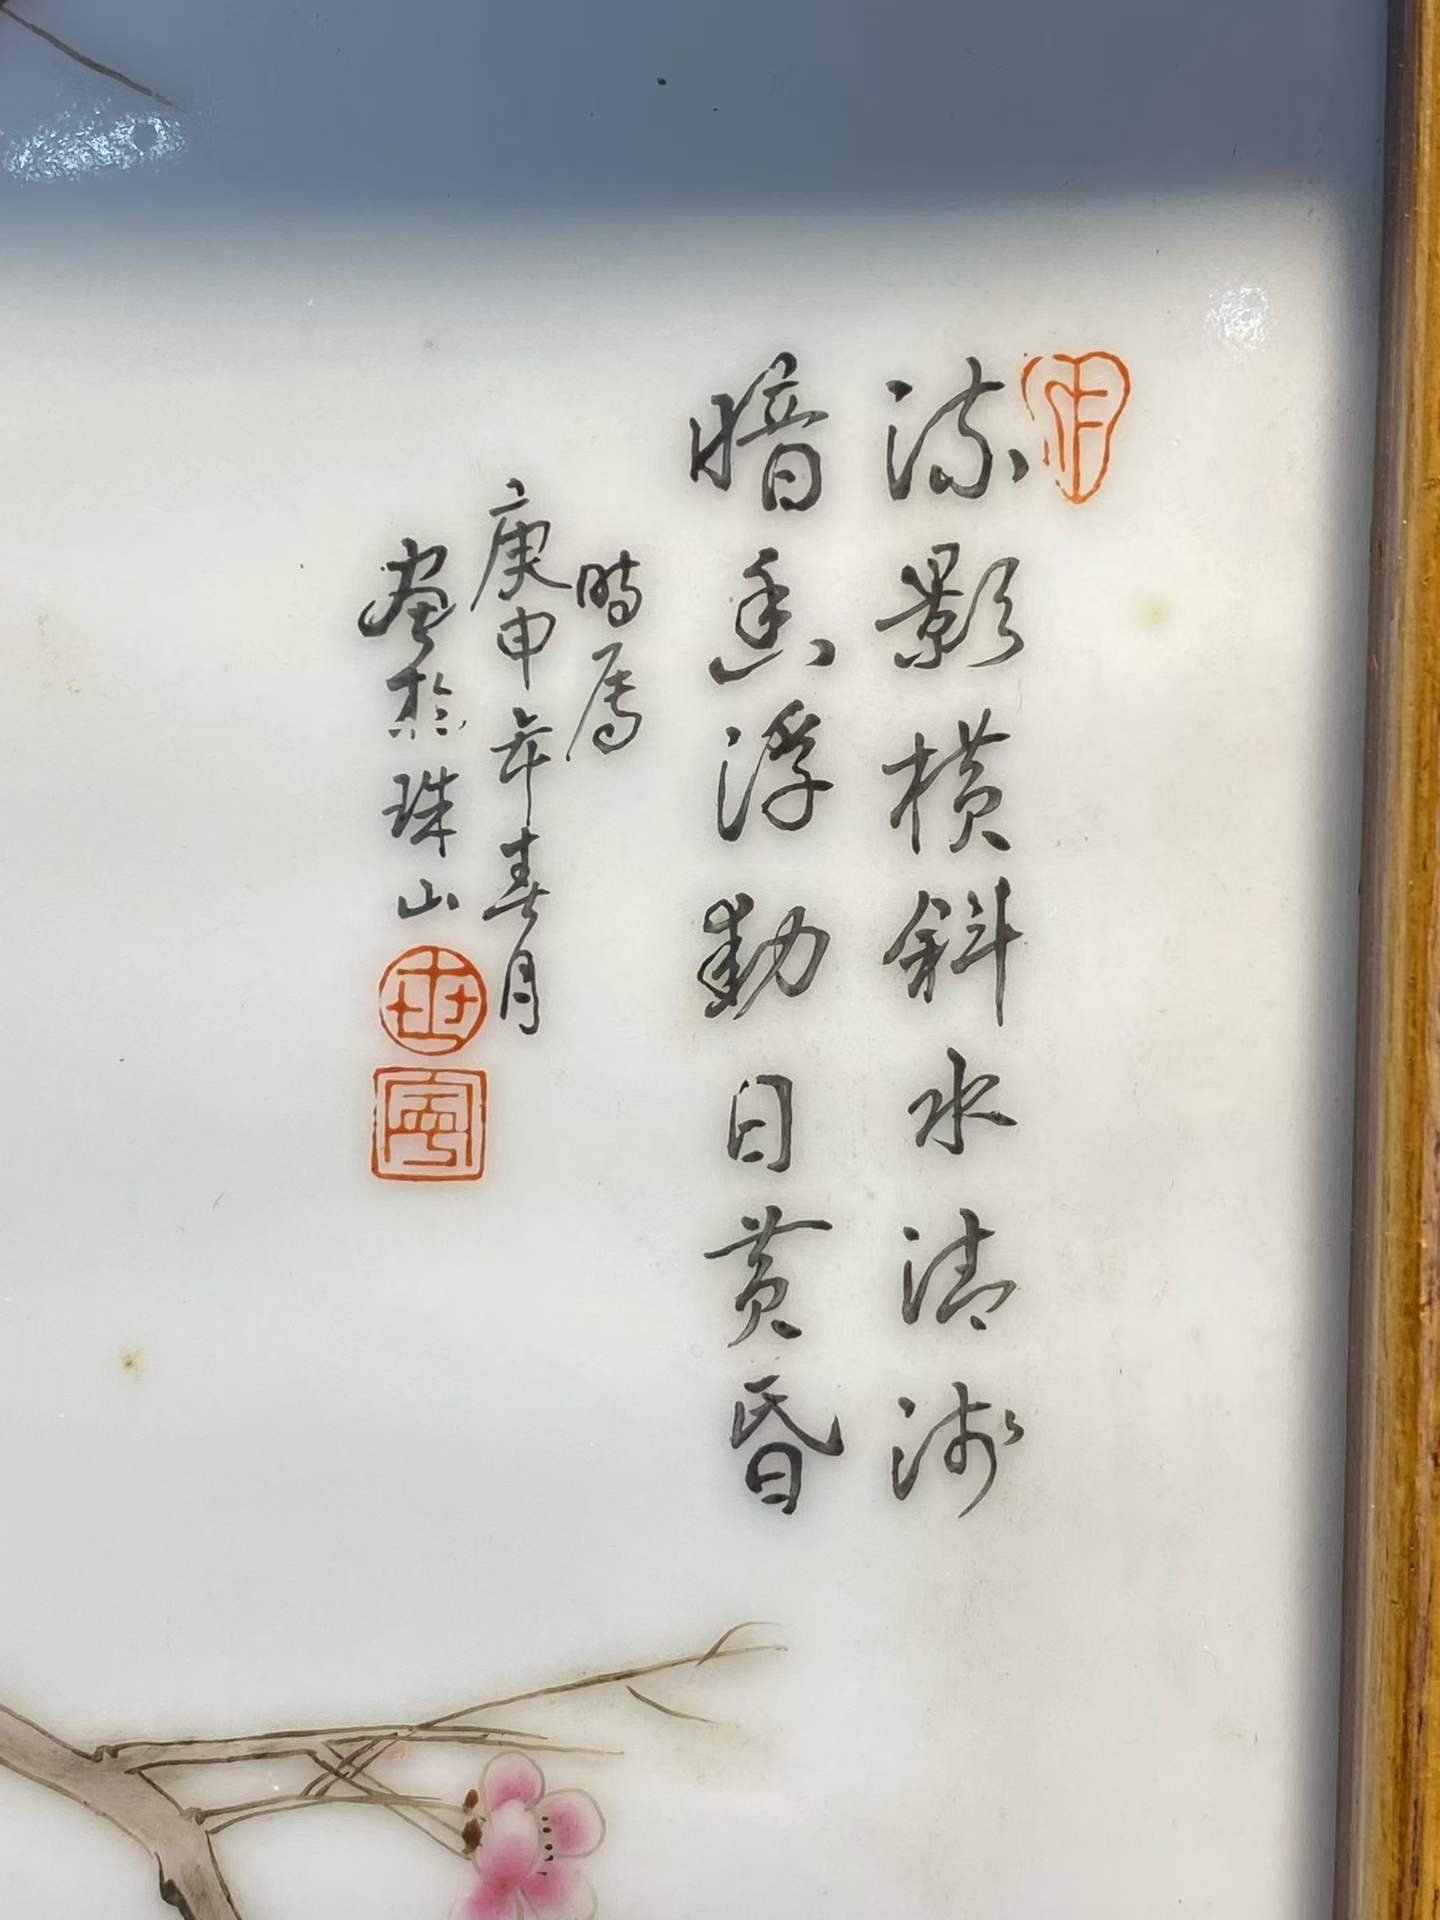 疏影橫斜水清浅
暗香浮動日黃昏
時属
庚申年春月
畫於珠山